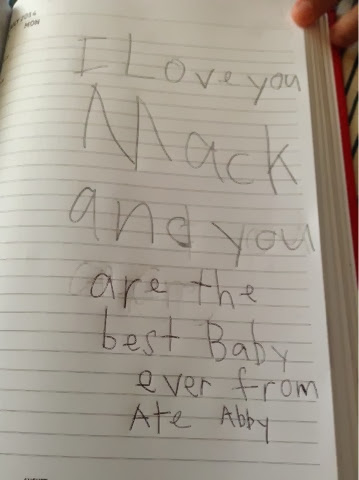 MON
I Love you
Mack
and you
are the
best Baby
ever from
Ate Abby